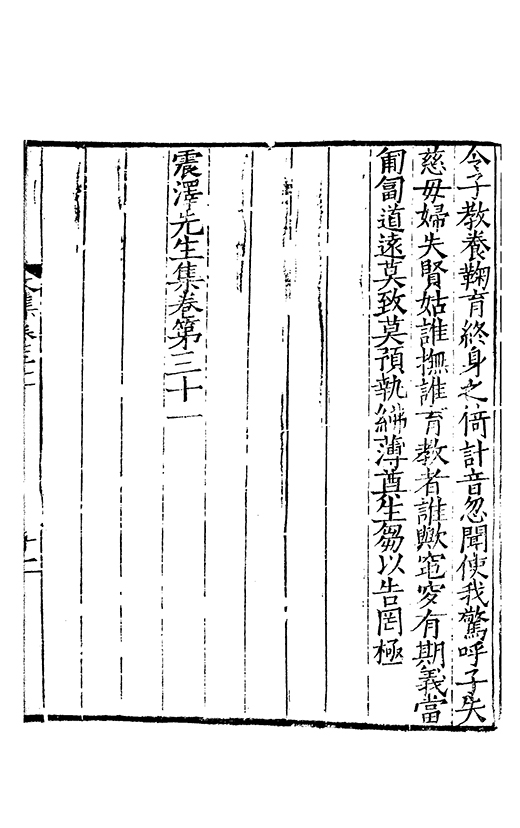 令子教養鞠育終身之倚訃音忽聞使我驚呼子失
慈母婦失賢姑誰撫誰育教者誰歟窀穸有期義當
匍匐道遠莫致莫預執紼薄奠生芻以告罔極
震澤先生集卷第三十一
文集卷三十一
十二